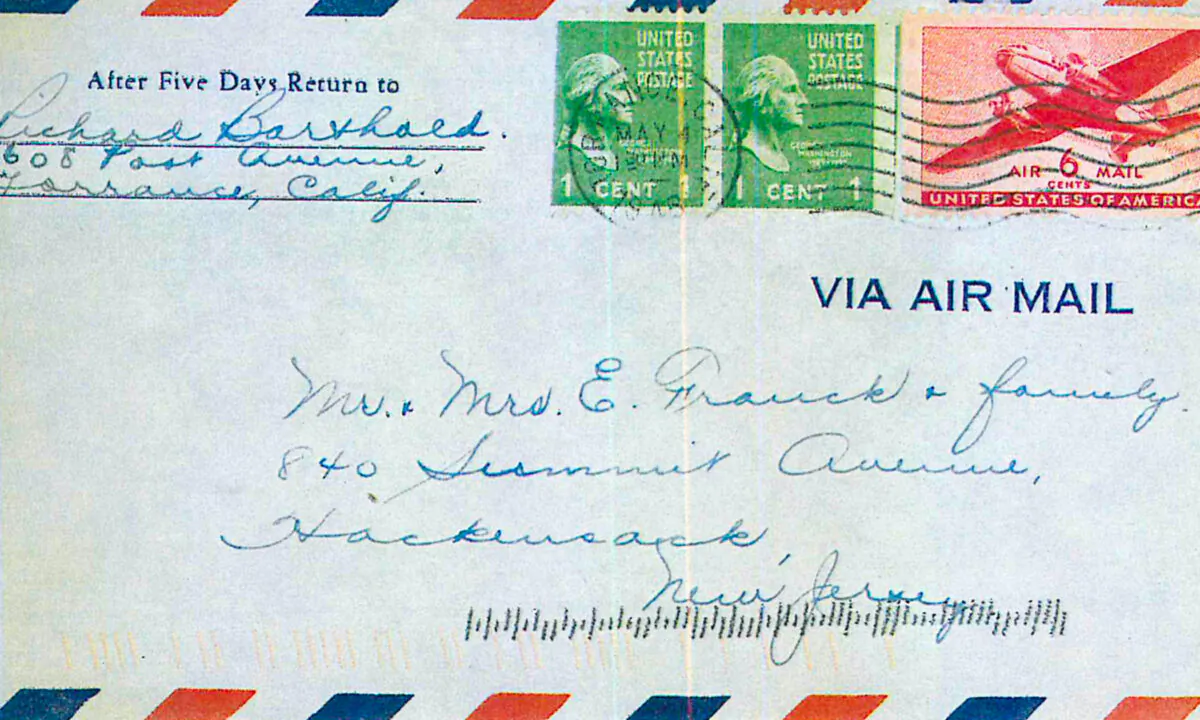 After Five Days Return to
Richard Barthold.
1608 Post Avenue,
Torrance, Calif.
UNITED
STATES
POSTAGE
1 CENT 1
UNITED
STATES
POSTAGE
GEORGE
WASHINGTON
1 CENT 1
MAY 4
AIR 6 MAIL
CENTS
UNITED STATES OF AMERICA
VIA AIR MAIL
Mr. & Mrs. E. Franck & family.
840 Summit Avenue,
Hackensack,
New Jersey